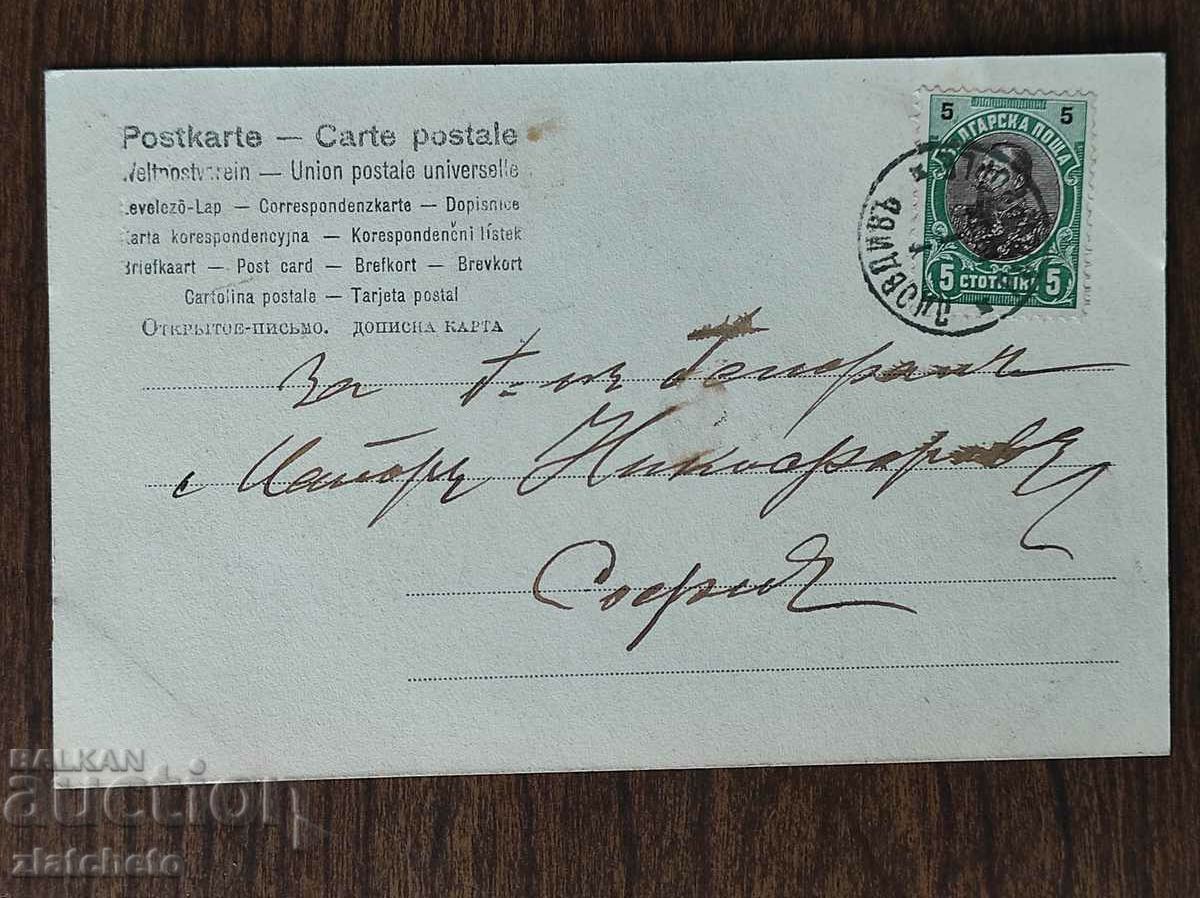 Postkarte — Carte postale
Weltpostverein — Union postale universelle
Levelező-Lap — Correspondenzkarte — Dopisnice
Karta korespondencyjna — Korespondenčni listek
Briefkaart — Post card — Brefkort — Brevkort
Cartolina postale — Tarjeta postal
Открытое-письмо. дописна карта
5 5
БЪЛГАРСКА ПОЩА
5 СТОТИНКИ 5
ПЛОВДИВЪ
За Г-нъ Генералъ
Майоръ Никифоровъ
София
BALKAN
auction
zlatcheto